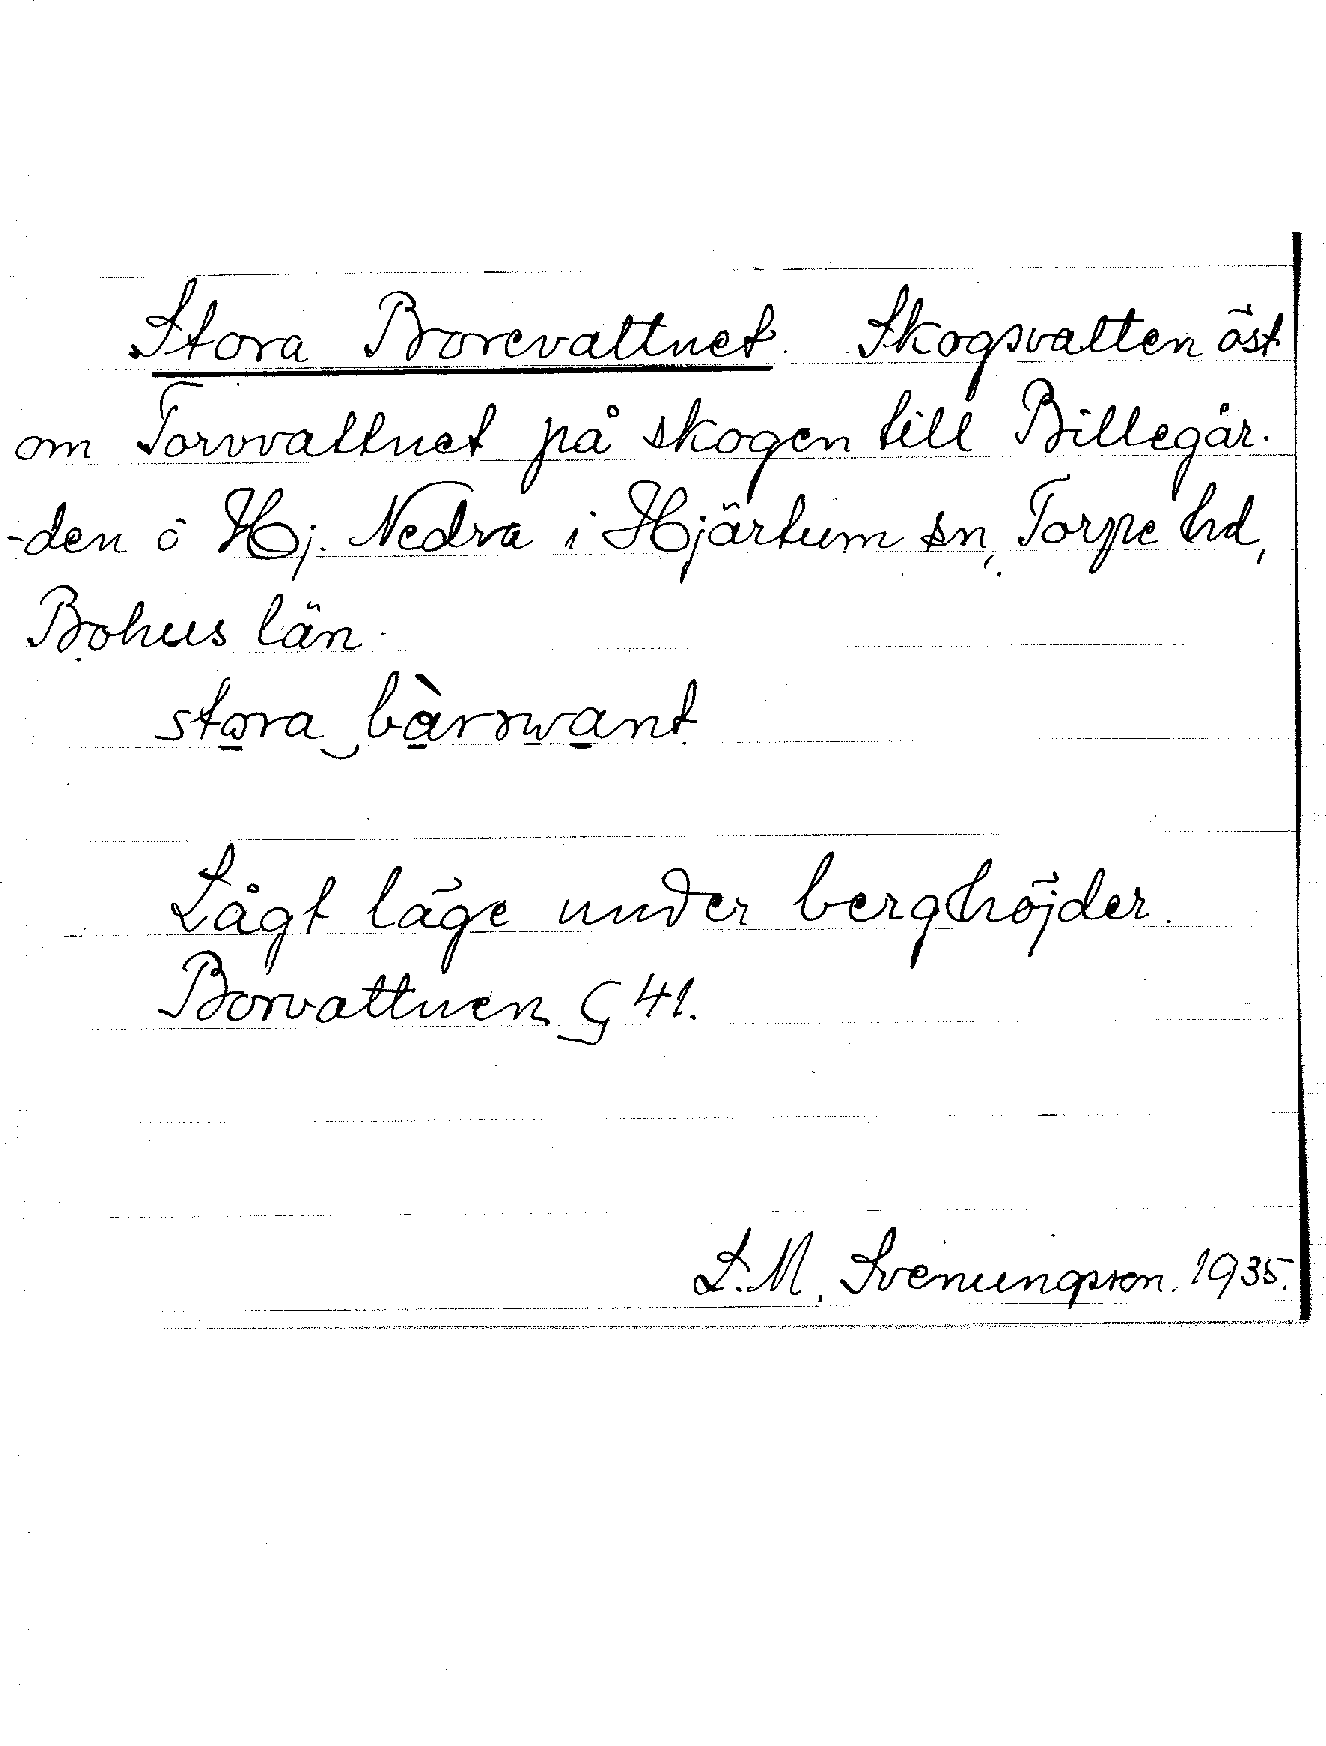 Stora Borevattnet. Skogsvatten öst
om Torvvattnet på skogen till Billegår-
-den ö Hj. Nedra i Hjärtum sn, Torpe hd,
Bohus län.
stora bàrəwant
Lågt läge under berghöjder.
Borvattnen G 41.
L. M. Svenungsson. 1935.